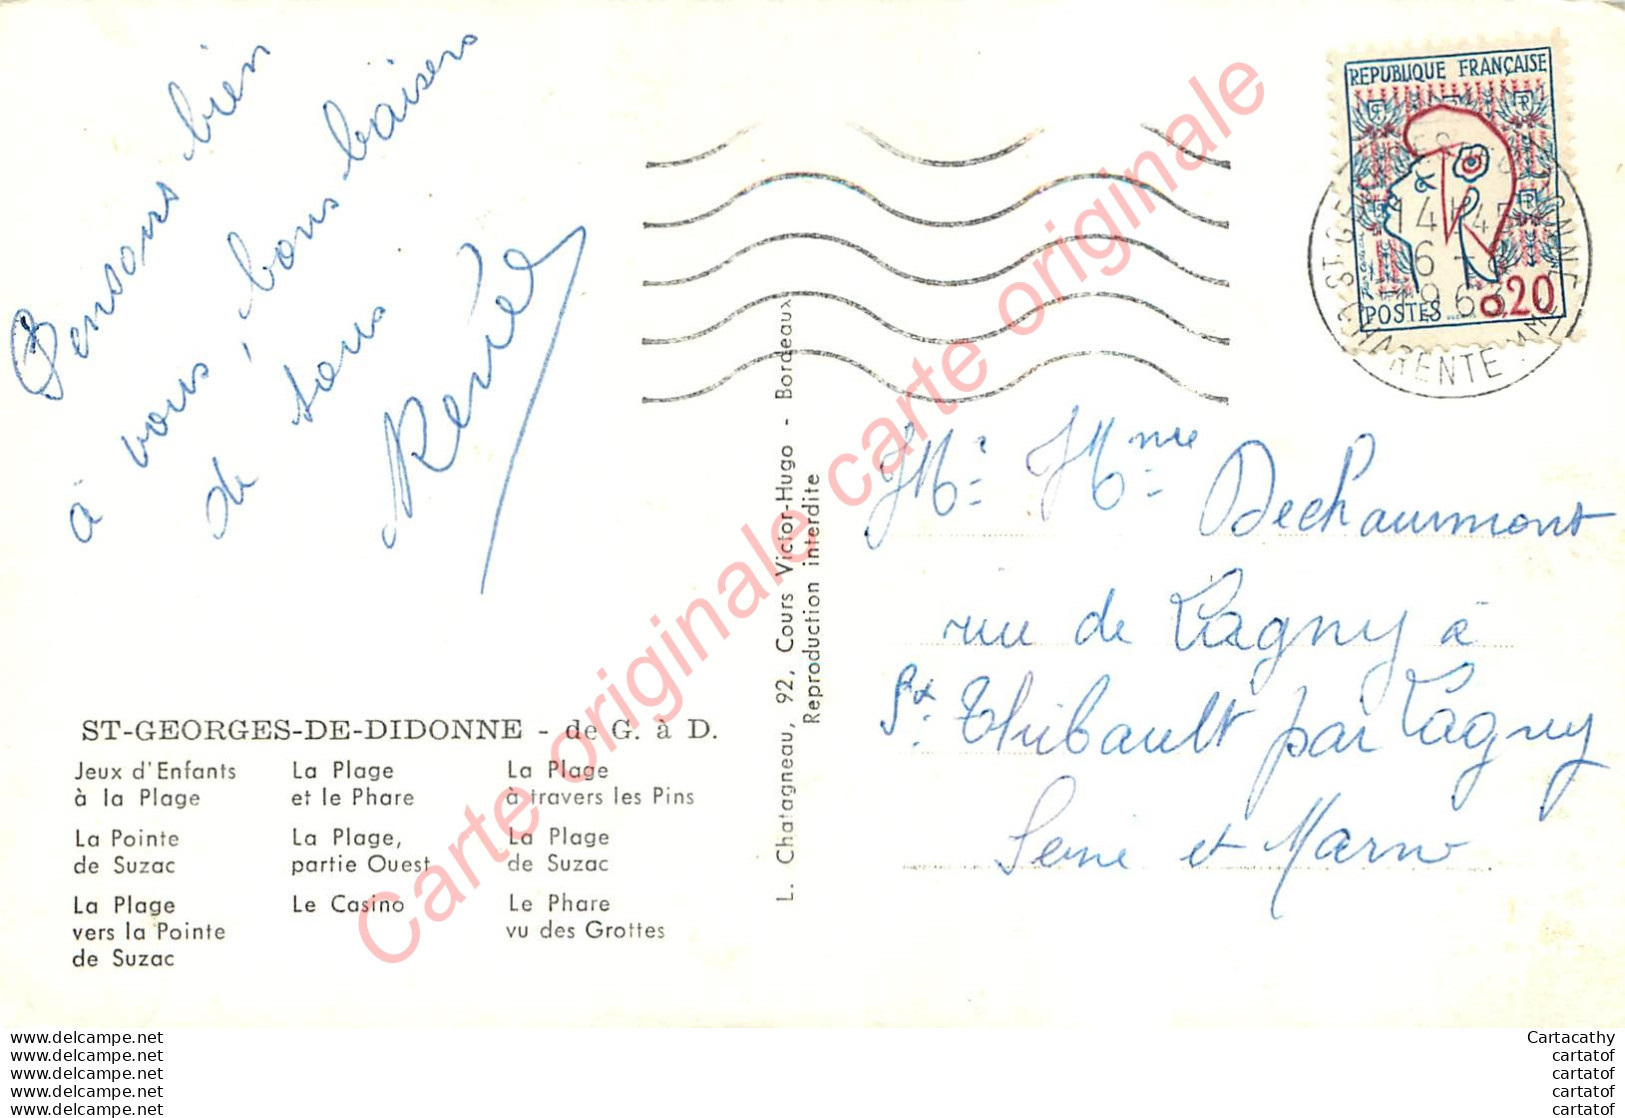 Pensons bien
à vous, bons baisers
de tous
Renée
ST-GEORGES-DE-DIDONNE - de G. à D.
Jeux d'Enfants
à la Plage
La Plage
et le Phare
La Plage
à travers les Pins
La Pointe
de Suzac
La Plage,
partie Ouest
La Plage
de Suzac
La Plage
vers la Pointe
de Suzac
Le Casino
Le Phare
vu des Grottes
L. Chatagneau, 92, Cours Victor-Hugo - Bordeaux
Reproduction interdite
Carte originale carte originale
REPUBLIQUE FRANÇAISE
POSTES
0,20
14 H 45
6
1963
CHARENTE
Mr. Mme
Dechaumont
rue de Lagny à
St. Thibault par Lagny
Seine et Marne
www.delcampe.net
www.delcampe.net
www.delcampe.net
www.delcampe.net
www.delcampe.net
Cartacathy
cartatof
cartatof
cartatof
cartatof